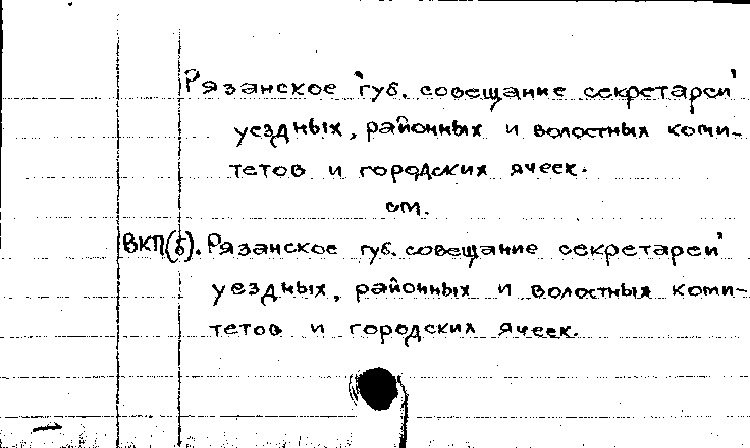 Рязанское губ. совещание секретарей
уездных, районных и волостных коми-
тетов и городских ячеек.
см.
ВКП(б). Рязанское губ. совещание секретарей
уездных, районных и волостных коми-
тетов и городских ячеек.